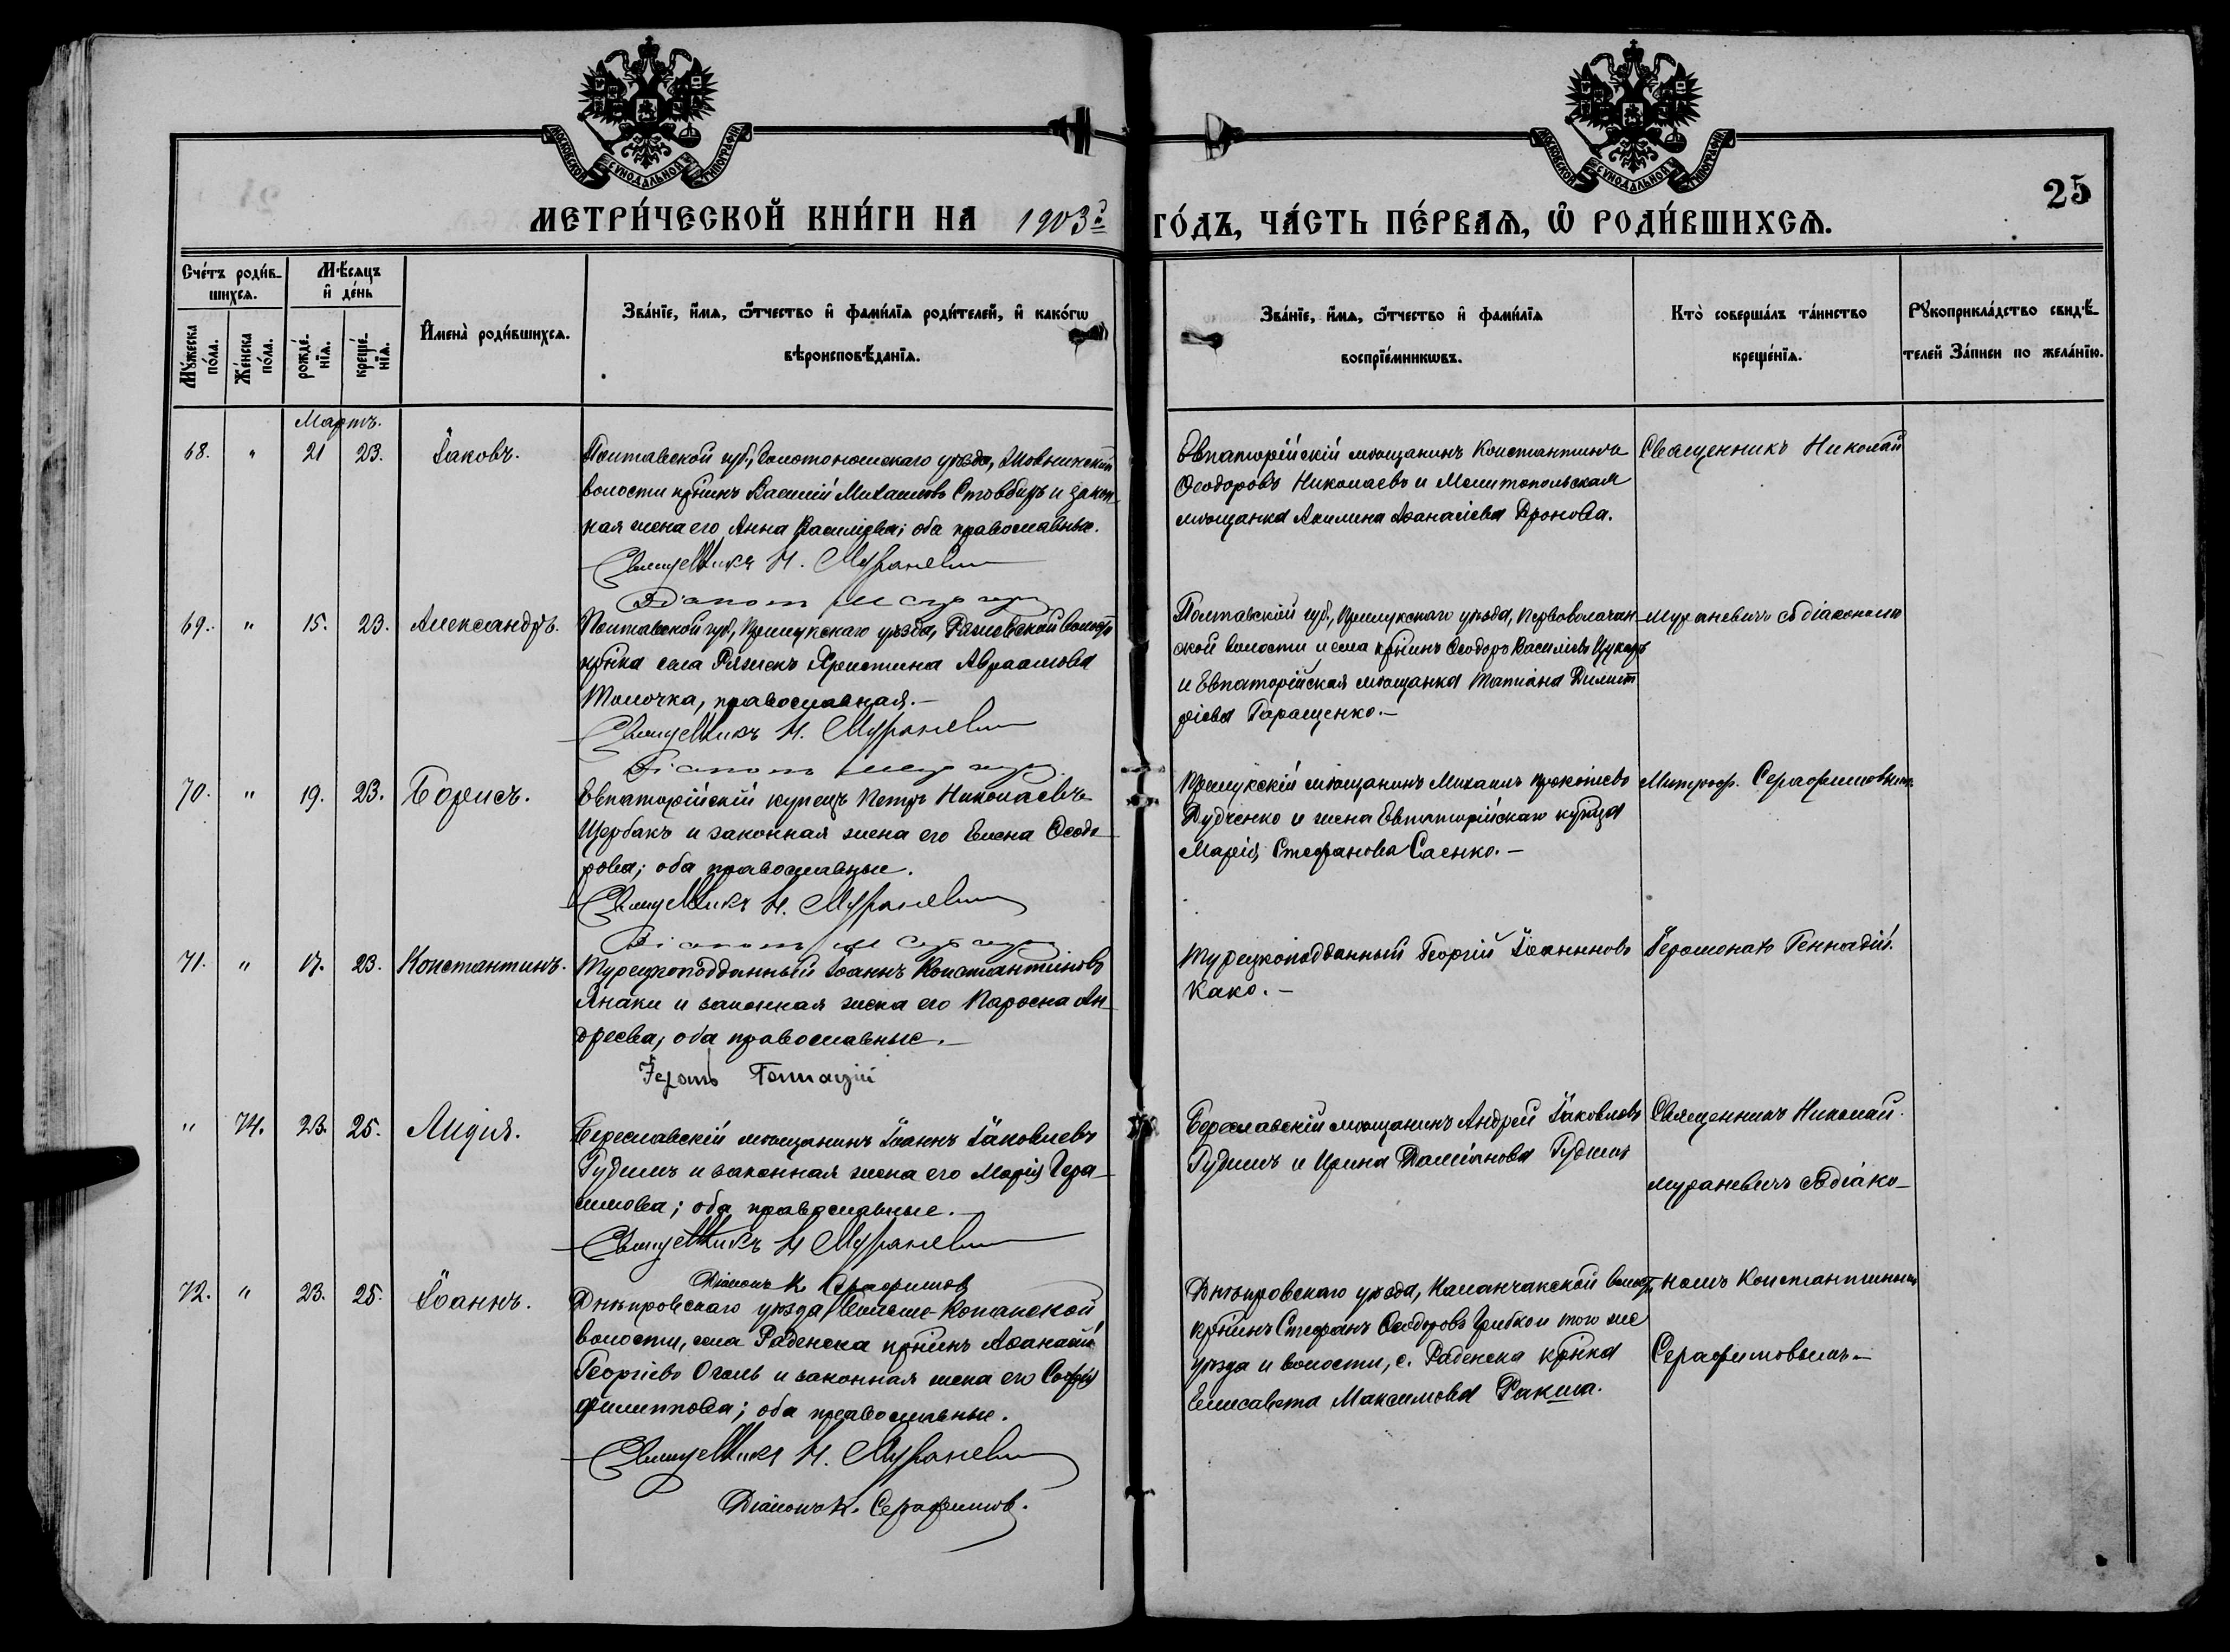 МОСКОВСКОЙ СѴНОДАЛЬНОЙ ТИПОГРАФІИ
МОСКОВСКОЙ СѴНОДАЛЬНОЙ ТИПОГРАФІИ
25
МЕТРИ́ЧЕСКОЙ КНИ́ГИ НА 1903 ГО́ДЪ, ЧА́СТЬ ПЕ́РВАѦ, Ѡ҆ РОДИ́ВШИХСѦ.
Сче́тъ роди́вшихсѧ.
Мꙋ́жеска по́ла.
Же́нска по́ла.
Мѣ́сѧцъ и҆ де́нь
рожде́нїѧ.
креще́нїѧ.
И҆мена̀ роди́вшихсѧ.
Зва́нїе, и҆́мѧ, ѻ҆́тчество и҆ фами́лїѧ роди́телей, и҆ како́гѡ
вѣроисповѣ́данїѧ.
Зва́нїе, и҆́мѧ, ѻ҆́тчество и҆ фами́лїѧ
воспрїе́мникѡвъ.
Кто̀ соверша́лъ та́инство
креще́нїѧ.
Рꙋкоприкла́дство свидѣ́телей за́писи по жела́нїю.
Мартъ.
68. " 21 23. Іаковъ.
Полтавской губ., Золотоношскаго уѣзда,
волости кр҃нинъ Василій Михаиловъ Стовбиръ и закон-
ная жена его Анна Василіева; оба православные.
Священникъ Н. Мураневич
Евпаторійскій мѣщанинъ Константинъ
Ѳеодоровъ Николаевъ и Мелитопольская
мѣщанка Акилина Аѳанасіева Дронова.
Священникъ Николай
69. " 15. 23. Александръ.
Полтавской губ., Прилукскаго уѣзда, волости
кр҃нка села Христина Авраамова
Толочка, православная.
Священникъ Н. Мураневич
Полтавской губ., Прилукскаго уѣзда, Переволочан-
ской волости и села кр҃нинъ Ѳеодоръ Василіевъ Цукоръ
и Евпаторійская мѣщанка Татіана Димит
ріева Геращенко.—
Мураневичъ съ діакономъ
70. " 19. 23. Борисъ.
Евпаторійскій купецъ Петръ Николаевъ
Щербакъ и законная жена его Елена Ѳеодо-
рова; оба православные.
Священникъ Н. Мураневич
Прилукскій мѣщанинъ Михаилъ Прокопіевъ
Дудченко и жена Евпаторійскаго купца
Марія Стефанова Саенко.—
Митроф. Серафимовымъ.
71. " 17. 23. Константинъ.
Турецкоподданный Іоаннъ Константиновъ
Янаки и законная жена его Ан-
дреева, оба православные.—
Іером Геннадій
Турецкоподданный Георгій Іоанновъ
Како.—
Іеромонахъ Геннадій.
" 74. 23. 25. Лидія.
Бериславскій мѣщанинъ Іоаннъ Іаковлевъ
Гудимъ и законная жена его Марія Гера-
симова; оба православные.—
Священникъ Н Мураневич
Діаконъ К Серафимов
Бериславскій мѣщанинъ Андрей Іаковлевъ
Гудимъ и Ирина Даміанова Гудимъ
Священникъ Николай
Мураневичъ съ діако-
72. " 23. 25. Іоаннъ.
Днѣпровскаго уѣзда, Копанской
волости, села Раденска кр҃нинъ Аѳанасій
Георгіевъ Оголь и законная жена его Софія
Филиппова; оба православные.
Священникъ Н. Мураневич
Діаконъ К. Серафимов.
Днѣпровскаго уѣзда, Каланчакской волости,
кр҃нинъ Стефанъ Ѳеодоровъ Грибко и того же
уѣзда и волости, с. Раденска кр҃нка
Елисавета Максимова Ракша.
номъ Константиномъ
Серафимовымъ.—